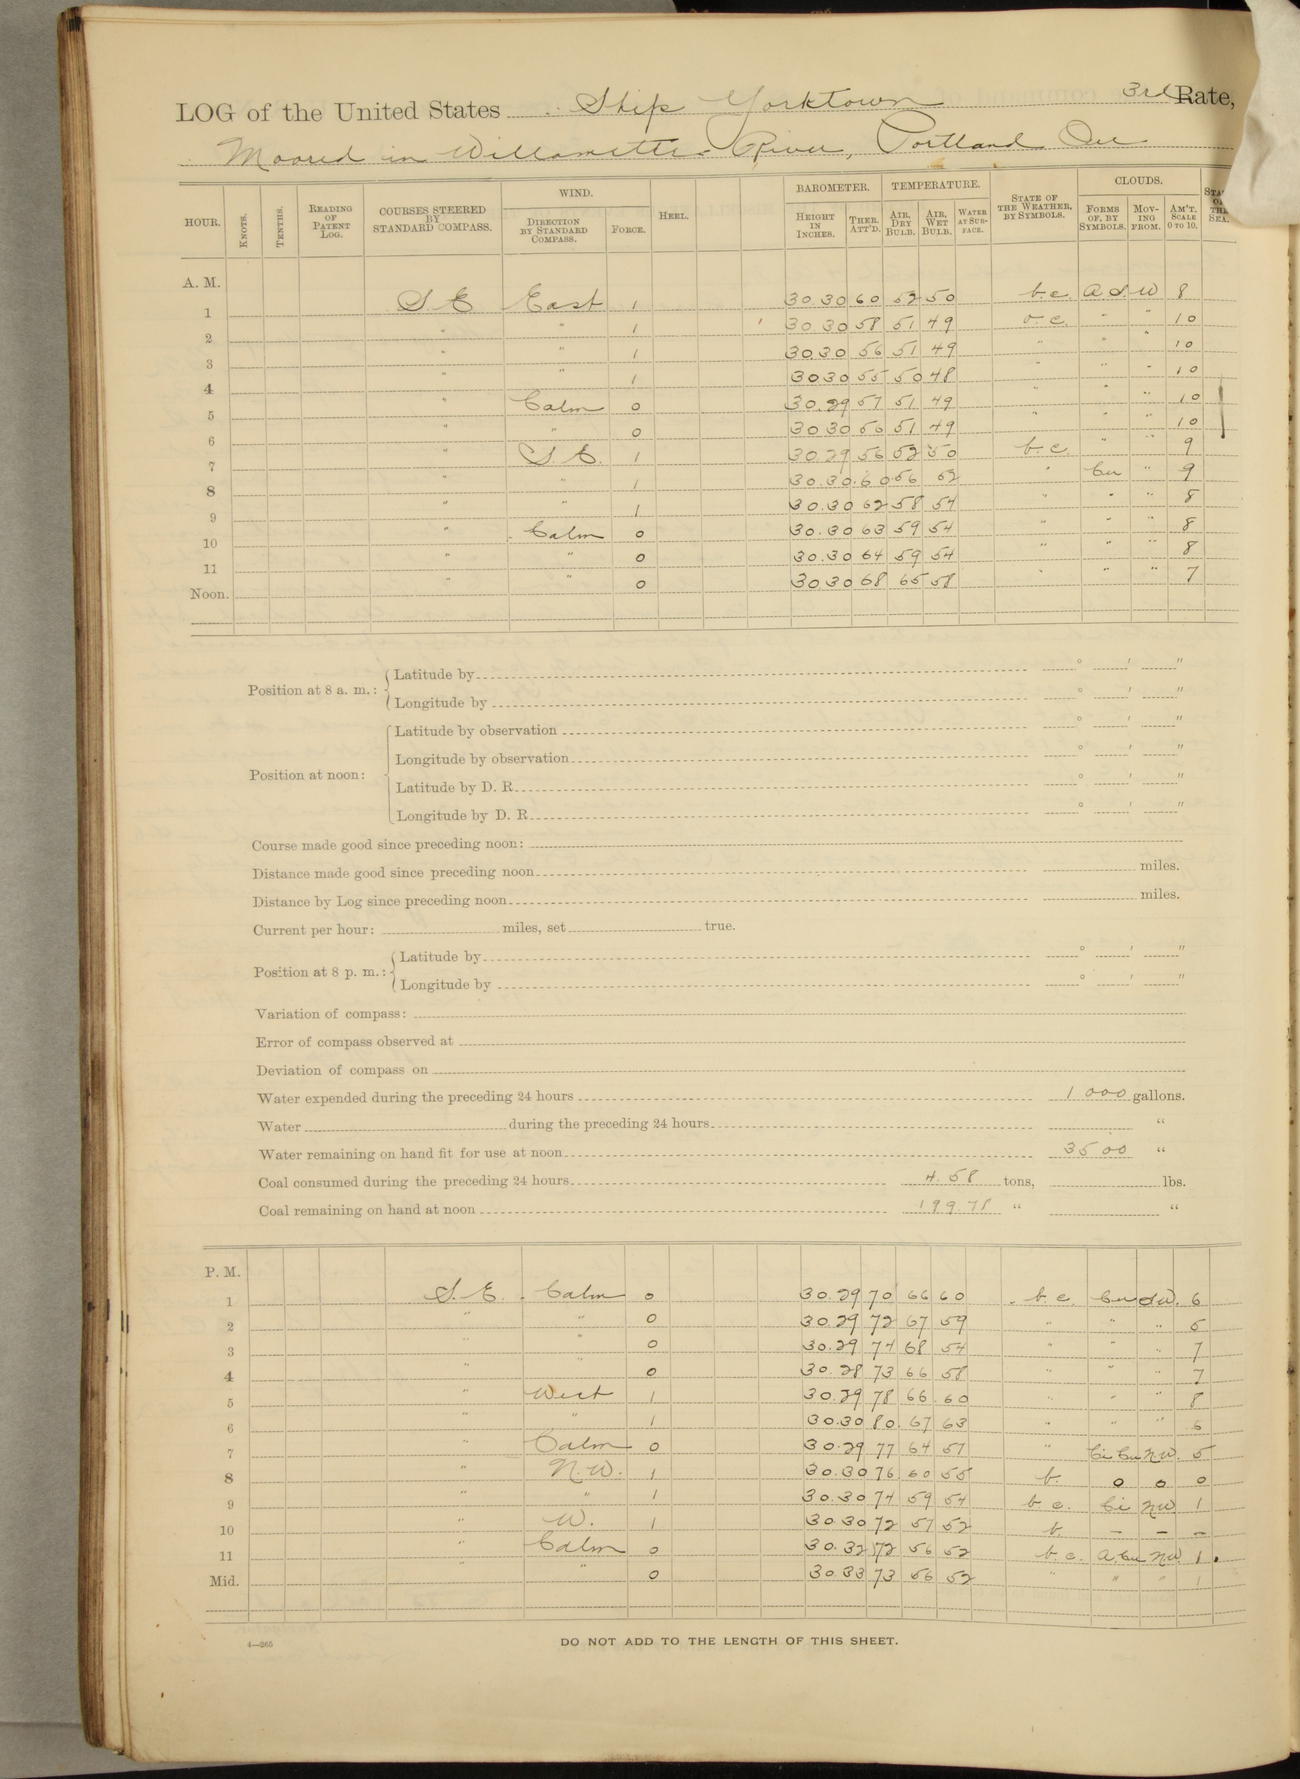 LOG of the United States Ship Yorktown 3rd Rate,
Moored in Willamette River, Portland Ore
HOUR. KNOTS. TENTHS. READING OF PATENT LOG. COURSES STEERED BY STANDARD COMPASS. WIND. DIRECTION BY STANDARD COMPASS. FORCE. HEEL. BAROMETER. HEIGHT IN INCHES. THER. ATT'D. TEMPERATURE. AIR, DRY BULB. AIR, WET BULB. WATER AT SURFACE. STATE OF THE WEATHER, BY SYMBOLS. CLOUDS. FORMS OF, BY SYMBOLS. MOVING FROM. AM'T. SCALE 0 TO 10.
A. M.
1 S E East 1 30.30 60 52 50 b.c. W 8
2 " " 1 30.30 58 51 49 o.c. " " 10
3 " " 1 30.30 56 51 49 " " " 10
4 " " 1 30.30 55 50 48 " " 10
5 " Calm 0 30.29 57 51 49 " " " 10
6 " " 0 30.30 56 51 49 " " " 10
7 " S E. 1 30.29 56 52 50 b.c. " " 9
8 " " 1 30.30 60 56 52 " Cu " 9
9 " " 1 30.30 62 58 54 " " " 8
10 " Calm 0 30.30 63 59 54 " " " 8
11 " " 0 30.30 64 59 54 " " " 8
Noon. " " 0 30.30 68 65 58 " " " 7
Position at 8 a. m.: Latitude by ° ' "
Longitude by ° ' "
Position at noon: Latitude by observation ° ' "
Longitude by observation ° ' "
Latitude by D. R. ° ' "
Longitude by D. R. ° ' "
Course made good since preceding noon:
Distance made good since preceding noon miles.
Distance by Log since preceding noon miles.
Current per hour: miles, set true.
Position at 8 p. m.: Latitude by ° ' "
Longitude by ° ' "
Variation of compass:
Error of compass observed at
Deviation of compass on
Water expended during the preceding 24 hours 1000 gallons.
Water during the preceding 24 hours "
Water remaining on hand fit for use at noon 3500 "
Coal consumed during the preceding 24 hours 4.58 tons, lbs.
Coal remaining on hand at noon 199.78 " "
P. M.
1 S.E. Calm 0 30.29 70 66 60 b.c. Cu W. 6
2 " " 0 30.29 72 67 59 " " " 5
3 " " 0 30.29 74 68 54 " " " 7
4 " " 0 30.28 73 66 58 " " " 7
5 " West 1 30.29 78 66 60 " " " 8
6 " " 1 30.30 80 67 63 " " " 6
7 " Calm 0 30.29 77 64 57 " Ci Cu N.W. 5
8 " N.W. 1 30.30 76 60 55 b. 0 0 0
9 " " 1 30.30 74 59 54 b c. Ci NW 1
10 " W. 1 30.30 72 57 52 b. – – –
11 " Calm 0 30.32 72 56 52 b c. A.Cu N.W. 1
Mid. " " 0 30.33 73 56 52 " " " 1
4—265 DO NOT ADD TO THE LENGTH OF THIS SHEET.